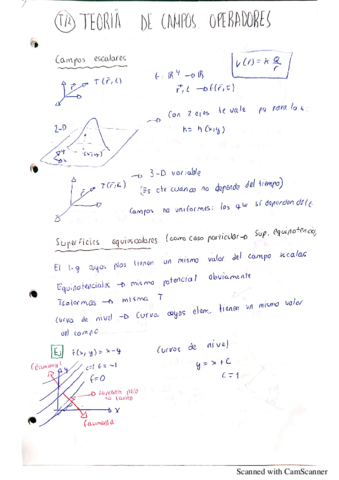 T1/2 TEORÍA DE CAMPOS OPERADORES
Campos escalares
V(r) = k Q/r
T(r,t)
f: R⁴ → R
r, t → f(r,t)
2-D
Con 2 ejes te vale
h = h(x,y)
(x,y)
3-D variable
T(r,t)
(Es cte cuando no depende del tiempo)
Campos no uniformes: los que sí dependen de
Superficies equiescalares (como caso particular → Sup. equipotenciales)
El l.g cuyos ptos tienen un mismo valor del campo escalar
Equipotenciales → mismo potencial obviamente
Isotermas → misma T
Curva de nivel → Curva cuyos elem. tienen un mismo valor
del campo
Ej f(x,y) = x-y
Curvas de nivel
y = x + C
C = 1
f=0
x
Scanned with CamScanner